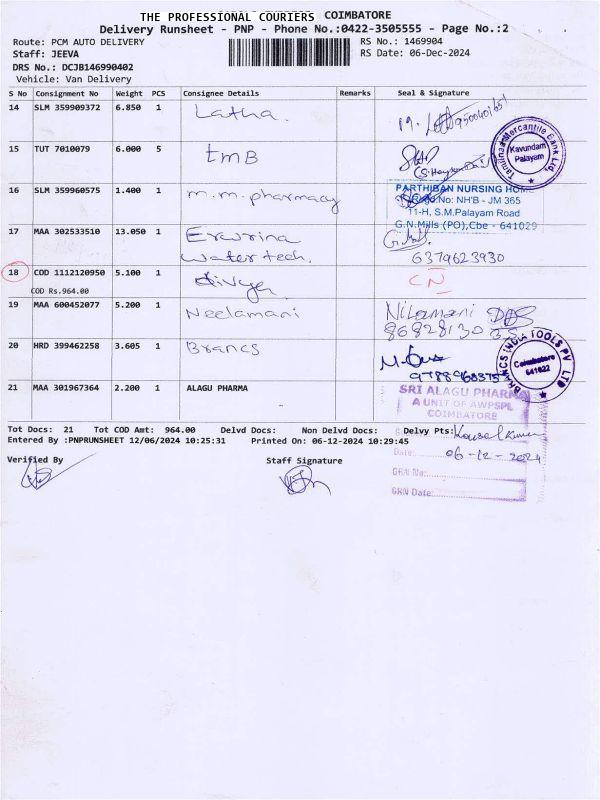 THE PROFESSIONAL COURIERS COIMBATORE
Delivery Runsheet - PNP - Phone No.:0422-3505555 - Page No.:2
Route: PCM AUTO DELIVERY
RS No.: 1469904
Staff: JEEVA
RS Date: 06-Dec-2024
DRS No.: DCJB146990402
Vehicle: Van Delivery
S No Consignment No Weight PCS Consignee Details Remarks Seal & Signature
14 SLM 359909372 6.850 1 Latha.
15 TUT 7010079 6.000 5 tmB
Tamilnad Mercantile Bank Ltd.
Kavundam
Palayam
16 SLM 359960575 1.400 1 m.m.pharmacy
PARTHIBAN NURSING HOME
Regd.No: NH'B - JM 365
11-H, S.M.Palayam Road
G.N.Mills (PO),Cbe - 641029
17 MAA 302533510 13.050 1
water tech.
6379623930
18 COD 1112120950 5.100 1 divya
CN
COD Rs.964.00
19 MAA 600452077 5.200 1 Neelamani
Nilamani
20 HRD 399462258 3.605 1 Brancs
BRANCS INDIA TOOLS PV LTD
Coimbatore
641022
21 MAA 301967364 2.200 1 ALAGU PHARMA
SRI ALAGU PHARMA
A UNIT OF AWPSPL
COIMBATORE
Tot Docs: 21 Tot COD Amt: 964.00 Delvd Docs: Non Delvd Docs: Delvy Pts:
Entered By :PNPRUNSHEET 12/06/2024 10:25:31 Printed On: 06-12-2024 10:29:45
Date: 06-12-2024
Verified By Staff Signature
GRN No:
GRN Date: